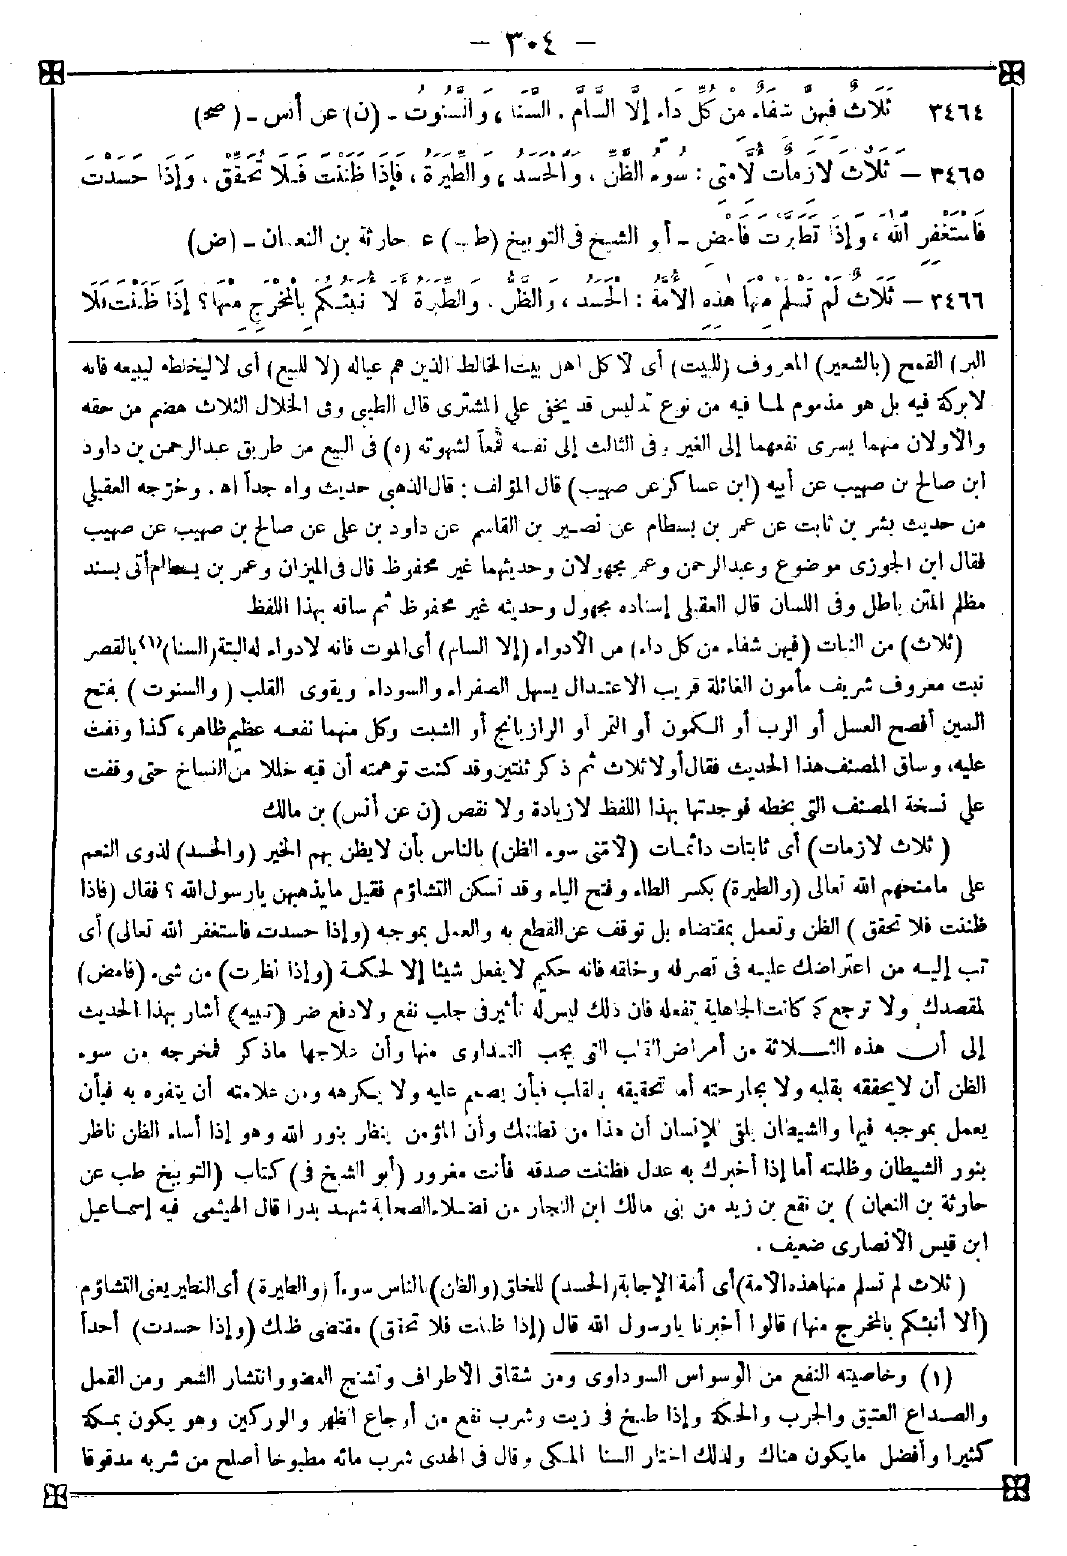 – ٣٠٤ –
٣٤٦٤ ثَلَاثٌ فِيهِنَّ شِفَاءٌ مِنْ كُلِّ دَاءٍ إِلَّا السَّامَ . السَّنَا ، وَالسَّنُوتُ – (ن) عن أنس – (صح)
٣٤٦٥ – ثَلَاثٌ لَازِمَاتٌ لِأُمَّتِى : سُوءُ الظَّنِّ ، وَالْحَسَدُ ، وَالطِّيَرَةُ ، فَإِذَا ظَنَنْتَ فَلَا تُحَقِّقْ ، وَإِذَا حَسَدْتَ
فَاسْتَغْفِرِ اللهَ ، وَإِذَا تَطَيَّرْتَ فَامْضِ – أبو الشيخ فى التوبيخ (طب) ء حارثة بن النعمان – (ض)
٣٤٦٦ – ثَلَاثٌ لَمْ تَسْلَمْ مِنْهَا هٰذِهِ الْأُمَّةُ : الْحَسَدُ ، وَالظَّنُّ . وَالطِّيَرَةُ أَلَا نُبِّئُكُمْ بِالْمَخْرَجِ مِنْهَا ؟ إِذَا ظَنَنْتَ فَلَا
البر) القمح (بالشعير) المعروف (للبيت) أى لأكل اهل بيت الخالط الذين هم عياله (لا للبيع) أى لا ليخلطه ليبيعه فانه
لا بركة فيه بل هو مذموم لما فيه من نوع تدليس قد يخفى على المشترى قال الطيبى وفى الخلال الثلاث هضم من حقه
والأولان منهما يسرى نفعهما إلى الغير وفى الثالث إلى نفسه قمعاً لشهوته (ه) فى البيع من طريق عبدالرحمن بن داود
ابن صالح بن صهيب عن أبيه (ابن عساكر عن صهيب) قال المؤلف : قال الذهبى حديث واه جداً اه . وخرّجه العقيلى
من حديث بشر بن ثابت عن عمر بن بسطام عن نصير بن القاسم عن داود بن على عن صالح بن صهيب عن صهيب
فقال ابن الجوزى موضوع وعبدالرحمن وعمر مجهولان وحديثهما غير محفوظ قال فى الميزان وعمر بن بسطام أتى بسند
مظلم المتن باطل وفى اللسان قال العقيلى إسناده مجهول وحديثه غير محفوظ ثم ساقه بهذا اللفظ
(ثلاث) من النبات (فيهن شفاء من كل داء) من الأدواء (إلا السام) أى الموت فانه لا دواء له البتة (السنا)(١) بالقصر
نبت معروف شريف مأمون الغائلة قريب الاعتدال يسهل الصفراء والسوداء ويقوى القلب (والسنوت) بفتح
السين أفصح العسل أو الرب أو الكمون أو التمر أو الرازيانج أو الشبت وكل منهما نفعه عظيم ظاهر ، كذا وقفت
عليه ، وساق المصنف هذا الحديث فقال أولا ثلاث ثم ذكر ثنتين وقد كنت توهمته أن فيه خللا من النساخ حتى وقفت
على نسخة المصنف التى بخطه فوجدتها بهذا اللفظ لا زيادة ولا نقص (ن عن أنس) بن مالك
(ثلاث لازمات) أى ثابتات دائمات (لأمتى سوء الظن) بالناس بأن لا يظن بهم الخير (والحسد) لذوى النعم
على ما منحهم الله تعالى (والطيرة) بكسر الطاء وفتح الياء وقد تسكن التشاؤم فقيل ما يذهبهن يا رسول الله ؟ فقال (فاذا
ظننت فلا تحقق) الظن وتعمل بمقتضاه بل توقف عن القطع به والعمل بموجبه (وإذا حسدت فاستغفر الله تعالى) أى
تب إليه من اعتراضك عليه فى تصرفه وخلقه فانه حكيم لا يفعل شيئا إلا لحكمة (وإذا تطيرت) من شىء (فامض)
لمقصدك ولا ترجع كما كانت الجاهلية تفعله فان ذلك ليس له تأثير فى جلب نفع ولا دفع ضر (تنبيه) أشار بهذا الحديث
إلى أن هذه الثلاثة من أمراض القلب التى يجب التداوى منها وأن علاجها ما ذكر فمخرجه من سوء
الظن أن لا يحققه بقلبه ولا بجارحته أما تحقيقه بالقلب فبأن يصمم عليه ولا يكرهه ومن علامته أن يتفوه به فبأن
يعمل بموجبه فيها والشيطان يلقى للإنسان أن هذا من فطنتك وأن المؤمن ينظر بنور الله وهو إذا أساء الظن ناظر
بنور الشيطان وظلمته أما إذا أخبرك به عدل فظننت صدقه فأنت مغرور (أبو الشيخ فى) كتاب (التوبيخ طب عن
حارثة بن النعمان) بن نفع بن زيد من بنى مالك ابن النجار من فضلاء الصحابة شهد بدرا قال الهيثمى فيه إسماعيل
ابن قيس الأنصارى ضعيف .
(ثلاث لم تسلم منها هذه الأمة) أى أمة الإجابة (الحسد) للخلق (والظن) بالناس سوءاً (والطيرة) أى التطير يعنى التشاؤم
(ألا أنبئكم بالمخرج منها) قالوا أخبرنا يا رسول الله قال (إذا ظننت فلا تحقق) مقتضى ظنك (وإذا حسدت) أحداً
(١) وخاصيته النفع من الوسواس السوداوى ومن شقاق الأطراف وتشنج العضو وانتشار الشعر ومن القمل
والصداع العتيق والجرب والحكة وإذا طبخ فى زيت وشرب نفع من أوجاع الظهر والوركين وهو يكون بمكة
كثيرا وأفضل ما يكون هناك ولذلك اختار السنا المكى وقال فى الهدى شرب مائه مطبوخا أصلح من شربه مدقوقا